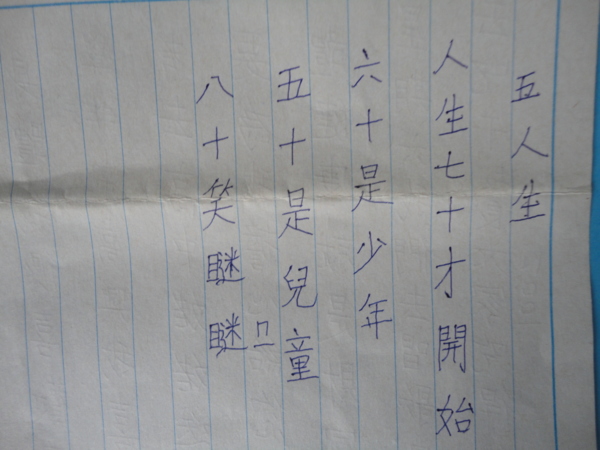 五人生
人生七十才開始
六十是少年
五十是兒童
八十笑瞇瞇
ㄇㄧ